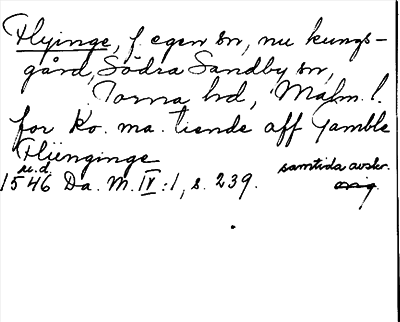 Flyinge, f. egen sn, nu kungs-
gård, Södra Sandby sn,
Torna hd, Malm. l.
for Ko. ma. tiende aff Gamble
Fliienginge
u.d. samtida avskr.
1546 Da. M. IV:1, s. 239. orig.